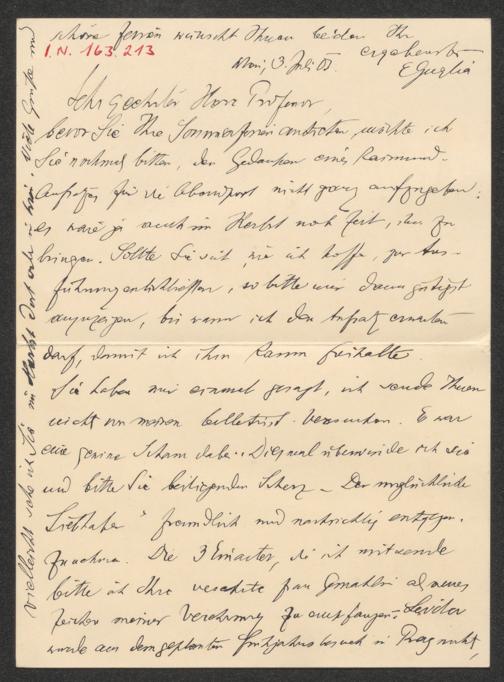 schöne Ferien wünscht Ihnen beiden Ihr
ergebenster
EGuglia
I.N. 163.213
Wien, 3. Juli 05.
Sehr geehrter Herr Professor,
bevor Sie Ihre Sommerferien antreten, möchte ich
Sie nochmal bitten, den Gedanken eines Raimund-
Aufsatzes für die Abendpost nicht ganz aufzugeben:
es wäre ja auch im Herbst noch Zeit, ihn zu
bringen. Sollte Sie sich, wie ich hoffe, zur Aus-
führung entschließen, so bitte mir dann gütigst
anzuzeigen, bis wann ich den Aufsatz erwarten
darf, damit ich ihm Raum freihalte.
Sie haben mir einmal gesagt, ich sende Ihnen
nicht von meinen belletrist. Versuchen. Es war
eine gewisse Scham dabei. Diesmal überwinde ich sie
und bitte Sie beiliegenden Scherz – Der unglückliche
Liebhaber" freundlich und nachsichtig entgegen-
zunehmen. Die 3 Einacter, die ich mitsende
bitte ich Ihre verehrte Frau Gemahlin als neues
Zeichen meiner Verehrung zu empfangen. Leider
wurde aus dem geplanten Frühjahrsbesuch in Prag nichts,
vielleicht sehe ich Sie im Herbst dort oder in Wien. Viele Grüße und